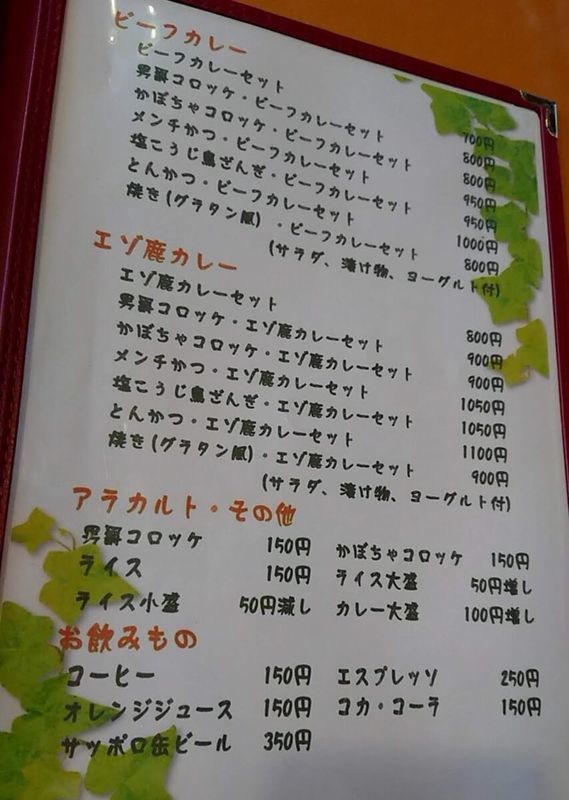 ビーフカレー
ビーフカレーセット 700円
男爵コロッケ・ビーフカレーセット 800円
かぼちゃコロッケ・ビーフカレーセット 800円
メンチかつ・ビーフカレーセット 950円
塩こうじ鳥ざんぎ・ビーフカレーセット 950円
とんかつ・ビーフカレーセット 1000円
焼き(グラタン風)・ビーフカレーセット 800円
(サラダ、漬け物、ヨーグルト付)
エゾ鹿カレー
エゾ鹿カレーセット 800円
男爵コロッケ・エゾ鹿カレーセット 900円
かぼちゃコロッケ・エゾ鹿カレーセット 900円
メンチかつ・エゾ鹿カレーセット 1050円
塩こうじ鳥ざんぎ・エゾ鹿カレーセット 1050円
とんかつ・エゾ鹿カレーセット 1100円
焼き(グラタン風)・エゾ鹿カレーセット 900円
(サラダ、漬け物、ヨーグルト付)
アラカルト・その他
男爵コロッケ 150円 かぼちゃコロッケ 150円
ライス 150円 ライス大盛 50円増し
ライス小盛 50円減し カレー大盛 100円増し
お飲みもの
コーヒー 150円 エスプレッソ 250円
オレンジジュース 150円 コカ・コーラ 150円
サッポロ缶ビール 350円